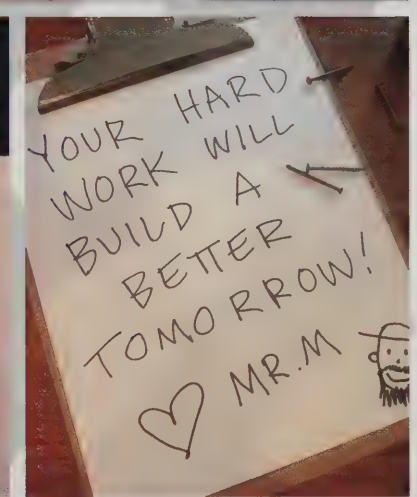 YOUR HARD
WORK WILL
BUILD A
BETTER
TOMORROW!
♡ MR.M